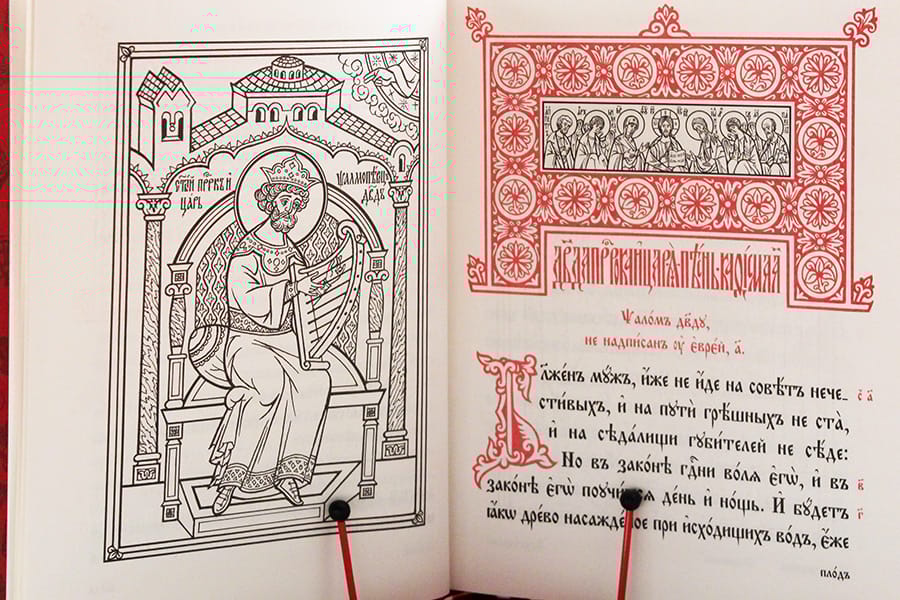 ст҃ы́й прⷪ҇ро́къ и҆
ца́рь
ѱалмопѣ́вецъ
дв҃дъ
дв҃да прⷪ҇ро́ка и҆ царѧ̀ пѣ́снь
Ѱало́мъ дв҃ду,
не надпи́санъ ᲂу҆ є҆вре́й, а҃.
Бл҃же́нъ мꙋ́жъ, и҆́же не и҆́де на совѣ́тъ нече_ с҃ а҃
сти́выхъ, и҆ на пꙋтѝ грѣ́шныхъ не ста̀,
и҆ на сѣда́лищи гꙋби́телей не сѣ́де:
Но въ зако́нѣ гдⷭ҇ни во́лѧ є҆гѡ̀, и҆ въ в҃
зако́нѣ є҆гѡ̀ поꙋчи́тсѧ де́нь и҆ но́щь. И҆ бꙋ́детъ г҃
ꙗ҆́кѡ дре́во насажде́ное при и҆схо́дищихъ во́дъ, є҆́же
пло́дъ